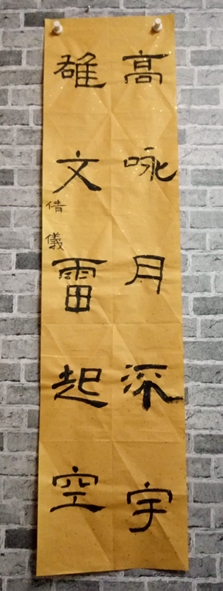 高咏月深宇
雄文雷起空
倩儀